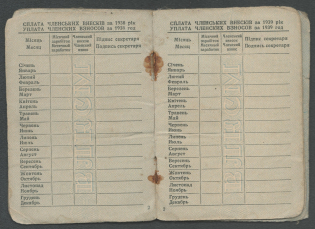 СПЛАТА ЧЛЕНСЬКИХ ВНЕСКІВ за 1938 рік
УПЛАТА ЧЛЕНСКИХ ВЗНОСОВ за 1938 год
Місяць
Месяц
Місячний заробіток
Месячный заработок
Членський внесок
Членский взнос
Підпис секретаря
Подпись секретаря
Січень
Январь
Лютий
Февраль
Березень
Март
Квітень
Апрель
Травень
Май
Червень
Июнь
Липень
Июль
Серпень
Август
Вересень
Сентябрь
Жовтень
Октябрь
Листопад
Ноябрь
Грудень
Декабрь
СПЛАТА ЧЛЕНСЬКИХ ВНЕСКІВ за 1939 рік
УПЛАТА ЧЛЕНСКИХ ВЗНОСОВ за 1939 год
Місяць
Месяц
Місячний заробіток
Месячный заработок
Членський внесок
Членский взнос
Підпис секретаря
Подпись секретаря
Січень
Январь
Лютий
Февраль
Березень
Март
Квітень
Апрель
Травень
Май
Червень
Июнь
Липень
Июль
Серпень
Август
Вересень
Сентябрь
Жовтень
Октябрь
Листопад
Ноябрь
Грудень
Декабрь